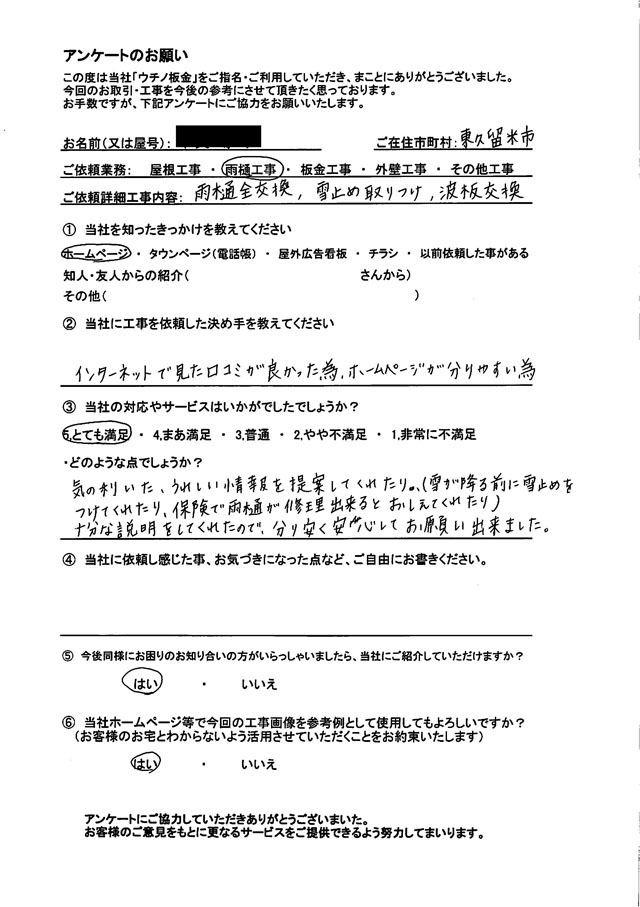 アンケートのお願い
この度は当社「ウチノ板金」をご指名・ご利用していただき、まことにありがとうございました。
今回のお取引・工事を今後の参考にさせて頂きたく思っております。
お手数ですが、下記アンケートにご協力をお願いいたします。
お名前(又は屋号): ご在住市町村:東久留米市
ご依頼業務: 屋根工事 ・ 雨樋工事 ・ 板金工事 ・ 外壁工事 ・ その他工事
ご依頼詳細工事内容: 雨樋全交換, 雪止め取りつけ, 波板交換
① 当社を知ったきっかけを教えてください
ホームページ ・ タウンページ(電話帳) ・ 屋外広告看板 ・ チラシ ・ 以前依頼した事がある
知人・友人からの紹介( さんから)
その他( )
② 当社に工事を依頼した決め手を教えてください
インターネットで見た口コミが良かった為、ホームページが分りやすい為
③ 当社の対応やサービスはいかがでしたでしょうか?
5.とても満足 ・ 4.まあ満足 ・ 3.普通 ・ 2.やや不満足 ・ 1.非常に不満足
・どのような点でしょうか?
気の利いた、うれしい情報を提案してくれたり。、(雪が降る前に雪止めを
つけてくれたり、保険で雨樋が修理出来るとおしえてくれたり)
十分な説明をしてくれたので、分り安く安心してお願い出来ました。
④ 当社に依頼し感じた事、お気づきになった点など、ご自由にお書きください。
⑤ 今後同様にお困りのお知り合いの方がいらっしゃいましたら、当社にご紹介していただけますか?
はい ・ いいえ
⑥ 当社ホームページ等で今回の工事画像を参考例として使用してもよろしいですか?
(お客様のお宅とわからないよう活用させていただくことをお約束いたします)
はい ・ いいえ
アンケートにご協力していただきありがとうございまいた。
お客様のご意見をもとに更なるサービスをご提供できるよう努力してまいります。